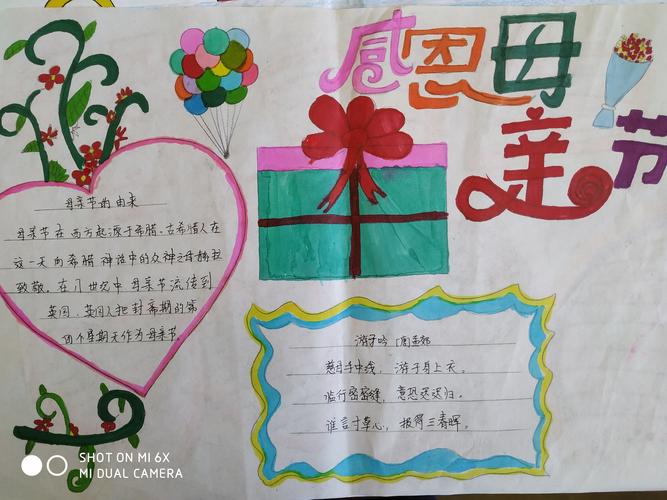 感恩母
亲节
母亲节的由来
母亲节在西方起源于希腊、古希腊人在
这一天向希腊神话中的众神之母赫拉
致敬。在17世纪中母亲节流传到
英国,英国人把封斋期的第
四个星期天作为母亲节。
游子吟
慈母手中线,游子身上衣。
临行密密缝,意恐迟迟归。
谁言寸草心,报得三春晖。
SHOT ON MI 6X
MI DUAL CAMERA